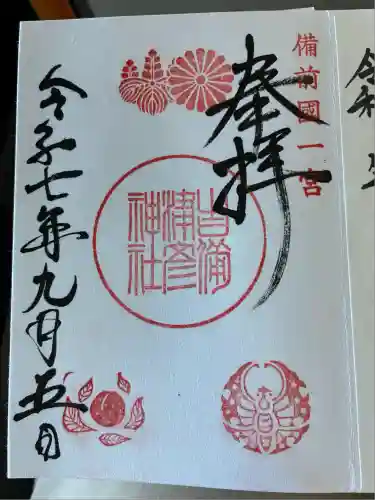 備前國一宮
奉拝
吉備
津彦
神社
令和七年九月五日
令和